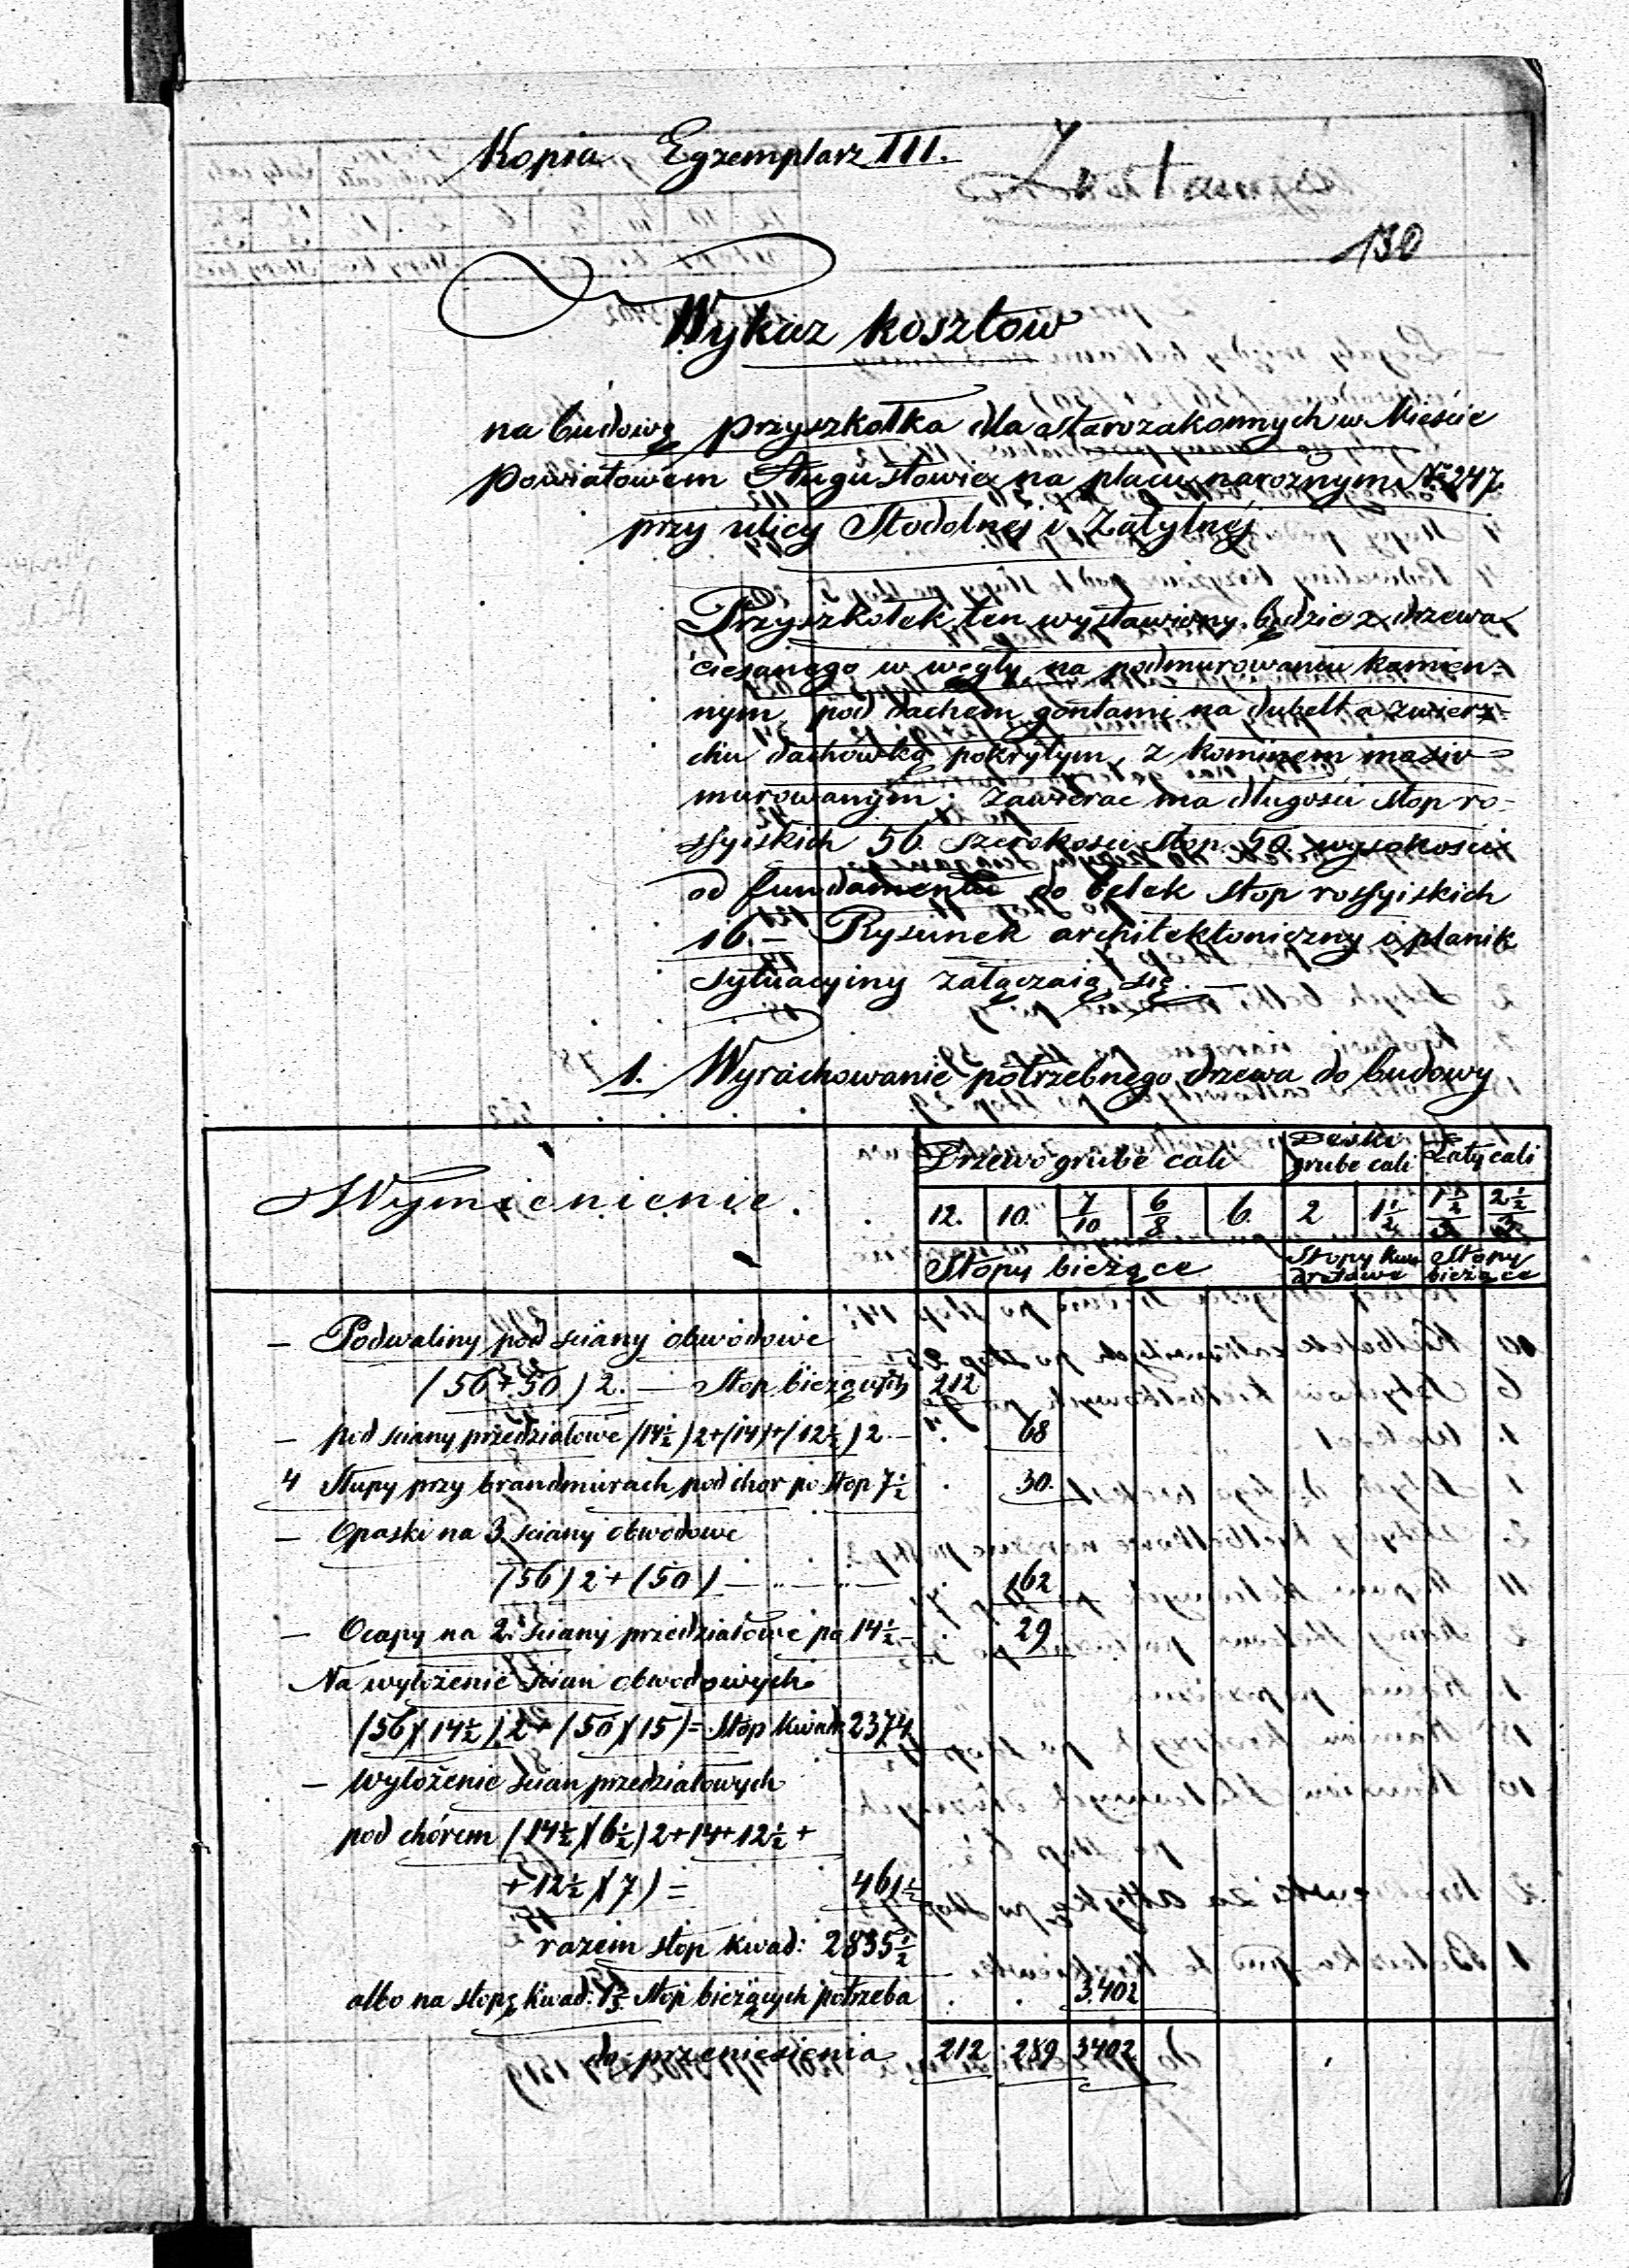 Kopia Egzemplarz III.
130
Wykaz kosztow
na budowę przyszkołka dla starozakonnych w Mieście
Powiatowém Augustowie na placu narożnym No 247.
przy ulicy Stodolnéj i Zatylnéj
Przyszkołek ten wystawiony będzie z drzewa
ciesanego w węgły na podmurowaniu kamien=
nym, pod dachem gontami na dubelt a zwierz=
chu dachówką pokrytym, z kominem masiv
murowanym; Zawierac ma długosci stop ro-
ssyiskich 56. Szerokosci stop. 50. wysokosci
od fundamentu do belek stop rossyiskich
16. — Rysunek architektoniczny i planik
sytuacyiny załączaią się. —
1. Wyrachowanie potrzebnego drzewa do budowy
Wymienienie. Drzewo grube cali Deski grube cali Łaty cali
12. 10. 7/10 6/8 6. 2 1 1/2 1 1/2/3 2 1/2/3
Stopy bieżące Stopy kwadratowe Stopy bieżące
— Podwaliny pod sciany obwodowe
(56+50) 2. — Stop bieżących 212
— pod sciany przedziałowe (14 1/2) 2+(14)+(12 1/2) 2. — 68
4 Słupy przy brandmurach pod chor po stop 7 1/2 30.
— Opaski na 3 sciany obwodowe
(56) 2 + (50) — „ — „ — 162
— Ocapy na 2. sciany przedziałowe po 14 1/2 — 29
Na wyłożenie scian obwodowych
(56)(14 1/2) 2 + (50)(15) = Stop kwad: 2374
— wyłożenie scian przedziałowych
pod chórem (14 1/2)(6 1/2) 2+14+12 1/2 +
+ 12 1/2)(7) = 461 1/2
razem stop kwad: 2835 1/2
albo na stopę kwad: 1 1/5 Stop bieżących potrzeba 3.402
do przeniesienia 212 289 3402